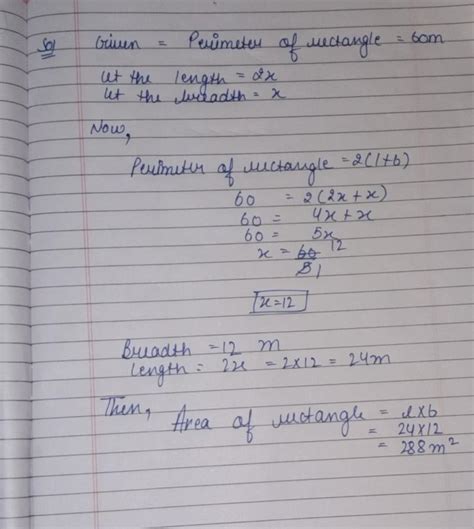 Sol Given = Perimeter of rectangle = 60m
let the length = 2x
let the breadth = x
Now,
Perimeter of rectangle = 2(l+b)
60 = 2(2x+x)
60 = 4x+x
60 = 5x
x = 60 12
5 1
x=12
Breadth = 12 m
length = 2x = 2×12 = 24m
Then, Area of rectangle = l×b
= 24×12
= 288m²